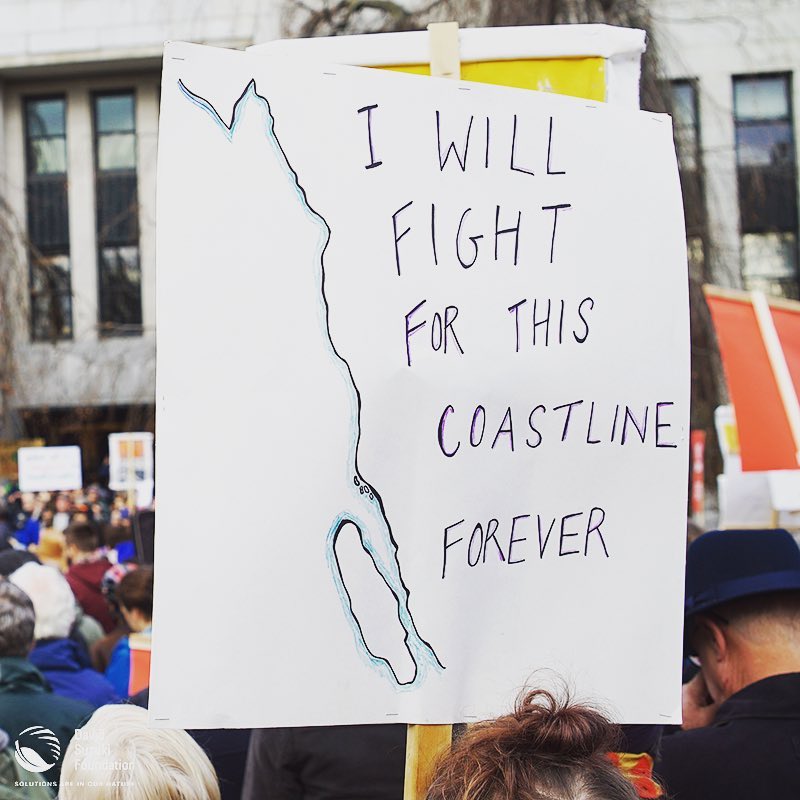 I WILL
FIGHT
FOR THIS
COASTLINE
FOREVER
David
Suzuki
Foundation
SOLUTIONS ARE IN OUR NATURE